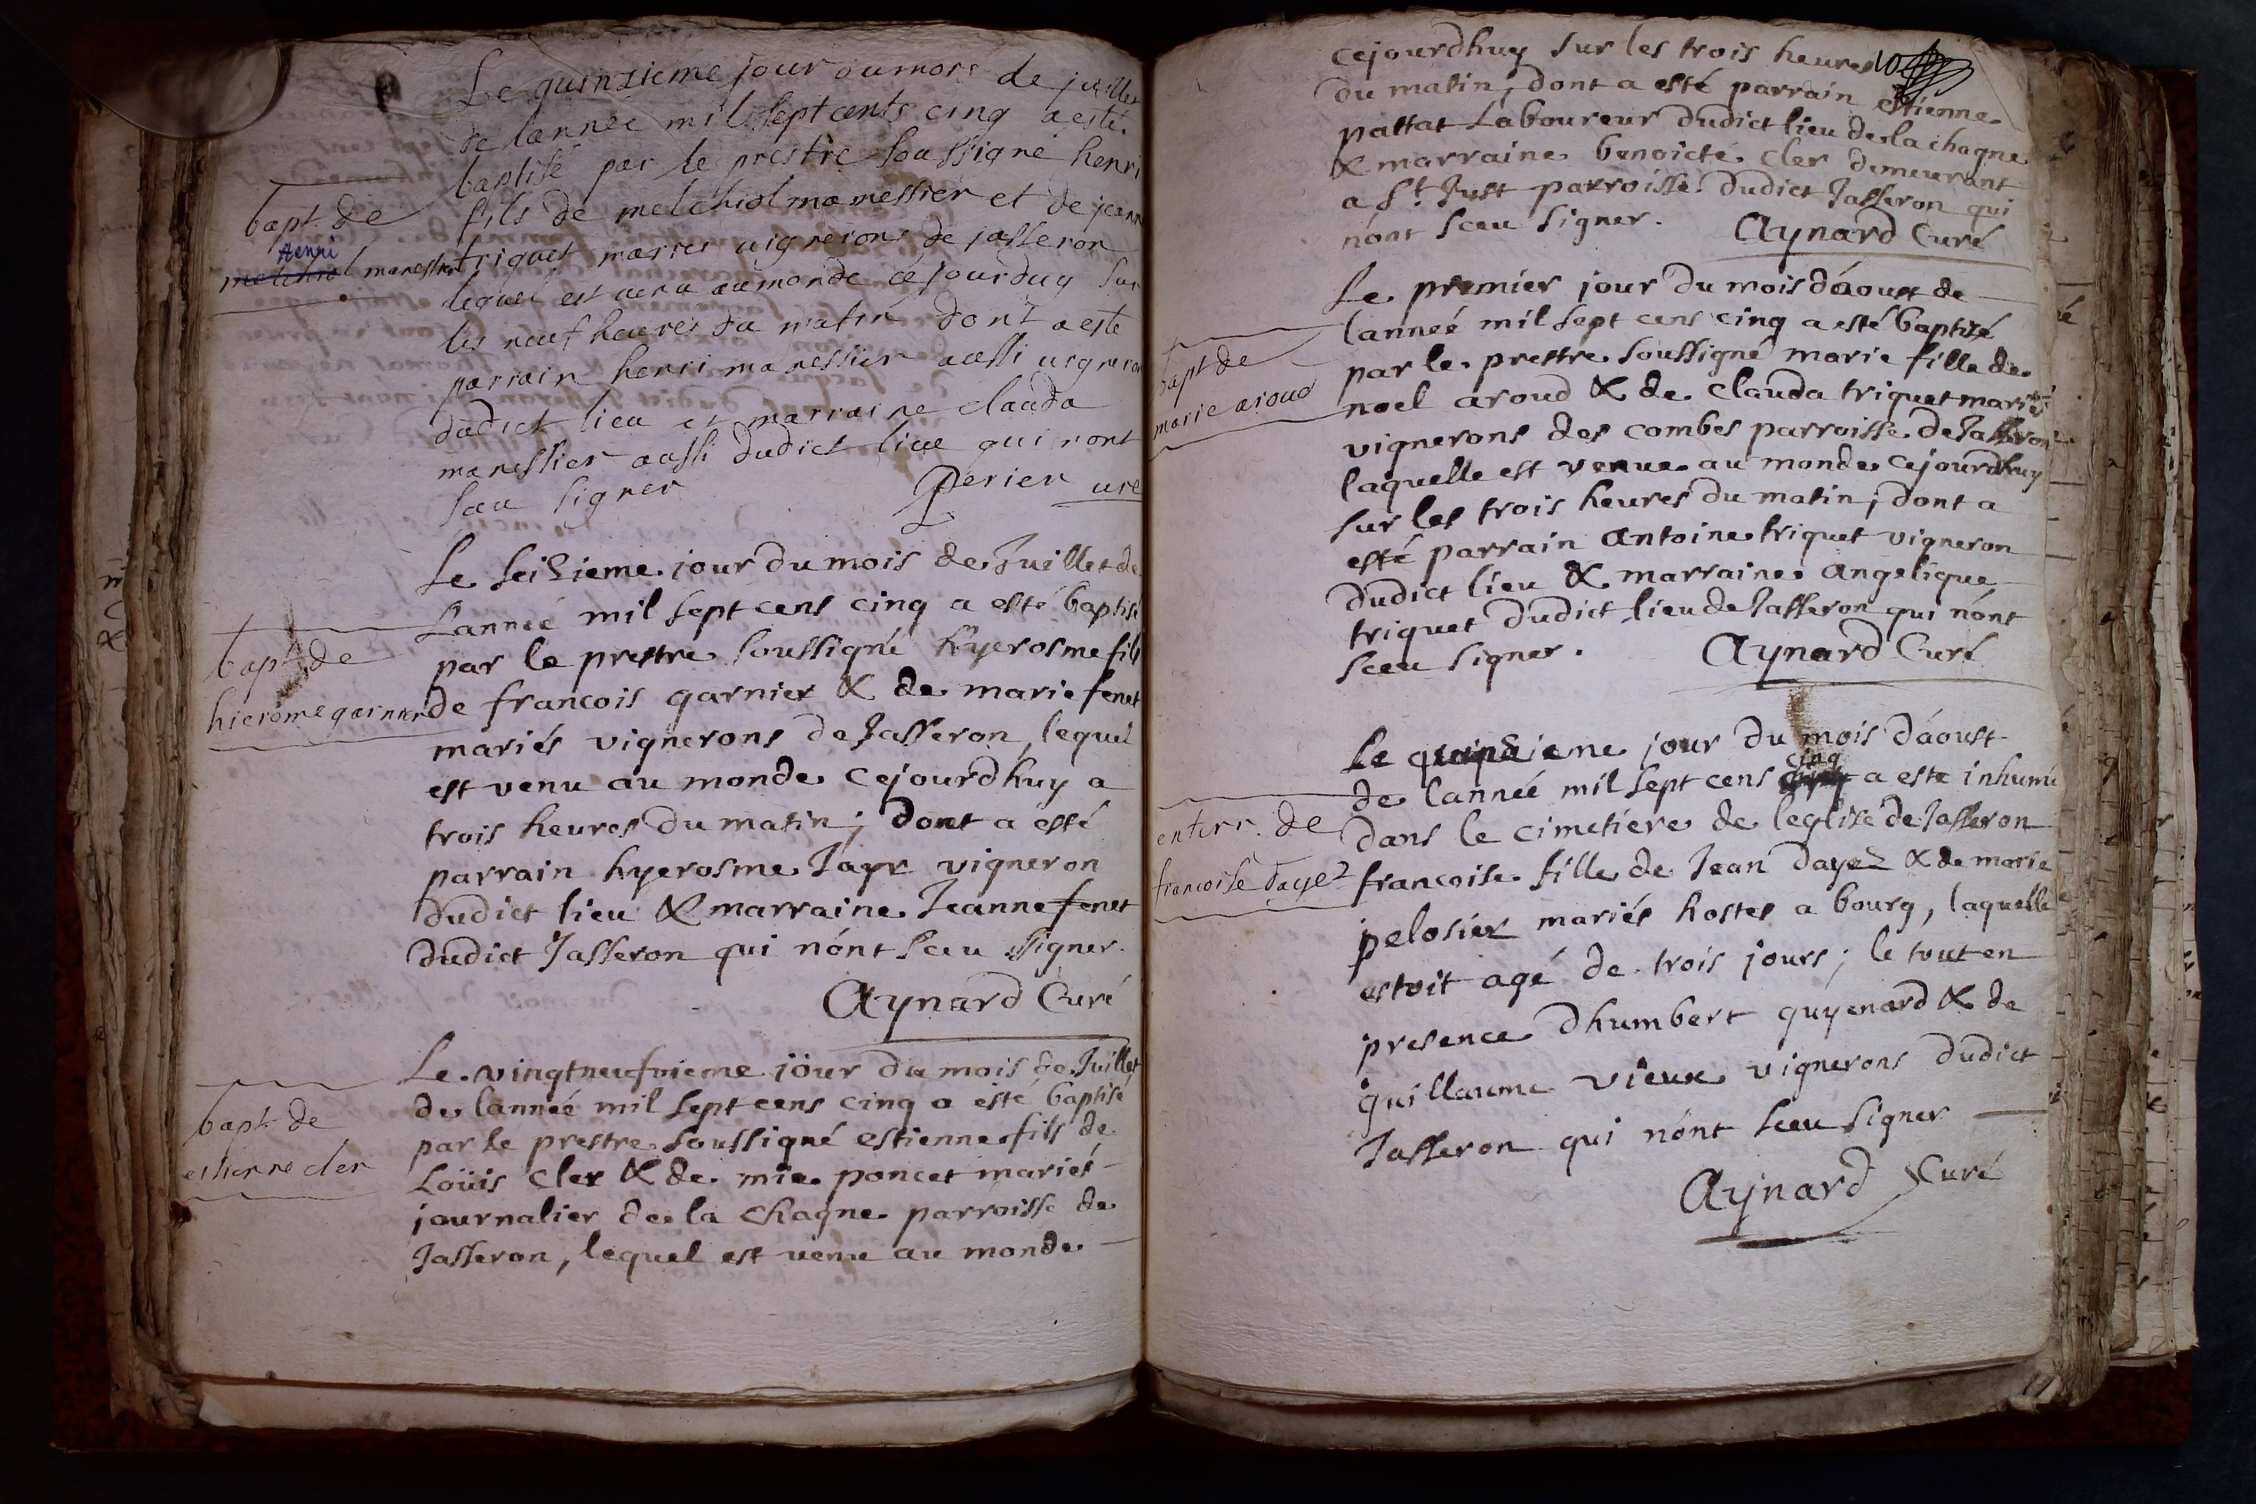 Le quinzieme jour du mois de juillet
de lannee mil sept cents cinq a esté
baptisé par le prestre soussigné henri
fils de melchiol manessier et de jeann
bapt. de
Henri
melchiol manessier
triquet maries vignerons de jasseron
lequel est venu au monde ce jourduy sur
les neuf heures du matin dont a este
parrain henri manessier aussi vigneron
dudict lieu et marraine clauda
manessier aussi dudict liue qui nont
sceu signer
Perier ure
Le seizieme jour du mois de Juillet de
Lanneé mil sept cens cinq a esté baptisé
par le prestre soussigné hyerosme fils
bapt. de
hierome garnier
de francois garnier & de marie fenet
mariés vignerons de Jasseron, lequel
est venu au monde cejourdhuy a
trois heures du matin; dont a esté
parrain hyerosme Jayr vigneron
dudict lieu & marraine Jeanne fenet
dudict Jasseron qui nónt sceu signer.
Aynard Curé
Le vingtneufvieme jour du mois de Juillet
de lanneé mil sept cens cinq a esté baptisé
bapt. de
estienne cler
par le prestre soussigné estienne fils de
Loüis Cler & de mie poncet mariés
journalier de la Chagne parroisse de
Jasseron, lequel est venu au monde
cejourdhuy sur les trois heures 10
du matin, dont a esté parrain estienne
pattat Laboureur dudict lieu de la chagne
& marraine benoicte Cler demeurant
a St. Just parroisse dudict Jasseron qui
nónt sceu signer.
Aynard Curé
Le premier jour du mois dáoust de
lanneé mil sept cens cinq a esté baptisé
par le prestre soussigné marie fille de
bapt de
marie aroud
noel aroud & de Clauda triquet mariés
vignerons des combes parroisse de Jasseron
laquelle est venue au monde cejourdhuy
sur les trois heures du matin; dont a
esté parrain antoine triquet vigneron
dudict lieu & marraine angelique
triquet dudict lieu de Jasseron qui nónt
sceu signer.
Aynard Curé
Le quinzieme jour du mois dáoust
cinq
de lanneé mil sept cens a este inhumé
enterr. de
francoise dayez
dans le cimetiere de leglise de Jasseron
francoise fille de Jean dayez & de marie
pelosier mariés hostes a bourg, laquelle
estoit agé de trois jours; le tout en
presence dhumbert guyenard & de
guillaume vieux vignerons dudict
Jasseron qui nónt sceu signer
Aynard Curé